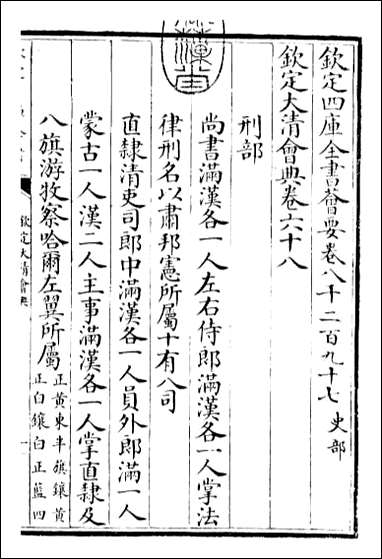 欽定四庫全書薈要卷八千二百九十七 史部
欽定大清會典卷六十八
刑部
尚書滿漢各一人左右侍郎滿漢各一人掌法
律刑名以肅邦憲所屬十有八司
直隸清吏司郎中滿漢各一人員外郎滿一人
蒙古一人漢二人主事滿漢各一人掌直隸及
八旗游牧察哈爾左翼所屬正黃東半旗鑲黃
正白鑲白正藍四
欽定大清會典